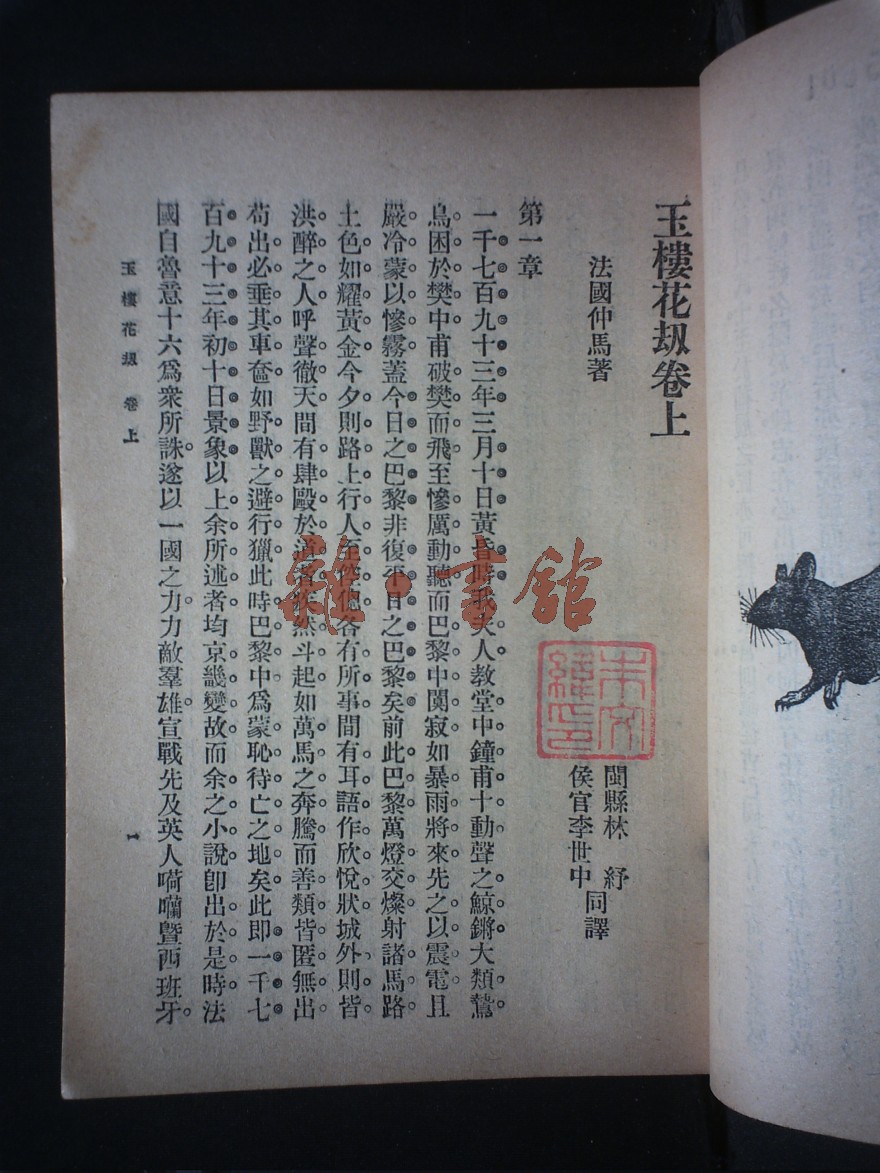 玉樓花刼卷上
法國仲馬著
閩縣林　紓
侯官李世中
同譯
第一章
一千七百九十三年三月十日黃昏時我夫人教堂中鐘甫十動聲之鯨鏘大類鷙
鳥困於樊中甫破樊而飛至慘厲動聽而巴黎中闃寂如暴雨將來先之以震電且
嚴冷蒙以慘霧蓋今日之巴黎非復平日之巴黎矣前此巴黎萬燈交燦射諸馬路
土色如耀黃金今夕則路上行人至倥傯各有所事間有耳語作欣悅狀城外則皆
洪醉之人呼聲徹天間有肆毆於道者咲然斗起如萬馬之奔騰而善類皆匿無出
苟出必垂其車奩如野獸之避行獵此時巴黎中爲蒙恥待亡之地矣此即一千七
百九十三年初十日景象以上余所述者均京畿變故而余之小說卽出於是時法
國自魯意十六爲衆所誅遂以一國之力力敵羣雄宣戰先及英人嗬囒暨西班牙
玉樓花刼 卷上
一
雜·書館